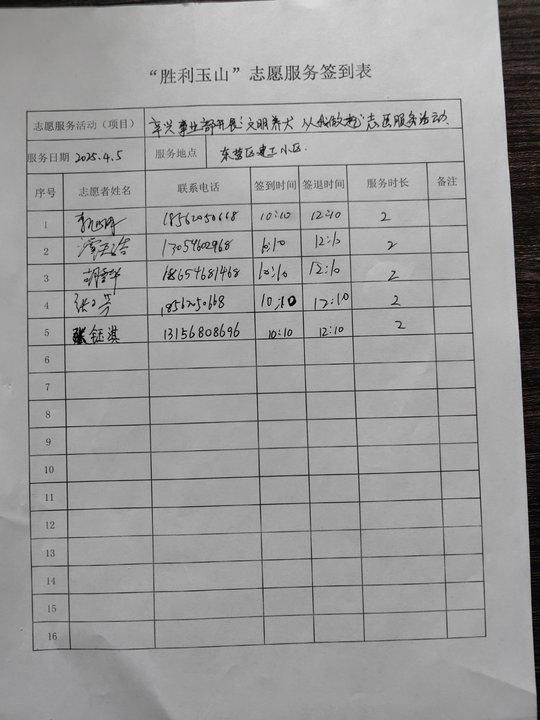 “胜利玉山”志愿服务签到表
志愿服务活动（项目） 辛兴事业部开展“文明养犬 从我做起”志愿服务活动.
服务日期 2025.4.5 服务地点 东营区建工小区.
序号 志愿者姓名 联系电话 签到时间 签退时间 服务时长 备注
1 18562050668 10:10 12:10 2
2 13054602968 10:10 12:10 2
3 18654681468 10:10 12:10 2
4 10:10 12:10 2
5 张钰淇 13156808696 10:10 12:10 2
6
7
8
9
10
11
12
13
14
15
16